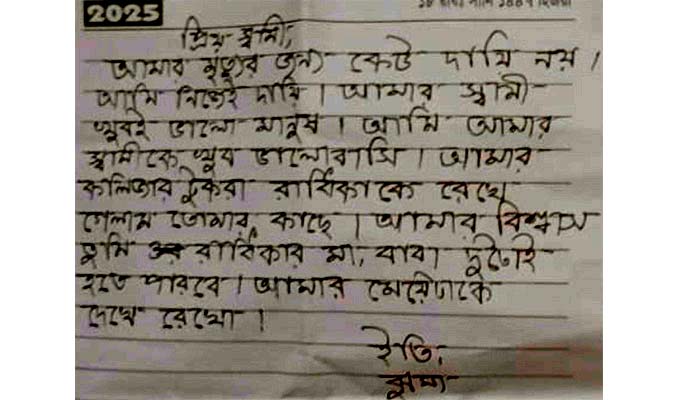 2025
প্রিয় স্বামী,
আমার মৃত্যুর জন্য কেউ দায়ি নয়।
আমি নিজেই দায়ি। আমার স্বামী
খুবই ভালো মানুষ। আমি আমার
স্বামীকে খুব ভালোবাসি। আমার
কলিজার টুকরা রাবিকাকে রেখে
গেলাম তোমার কাছে। আমার বিশ্বাস
তুমি রাবিকার মা, বাবা দুটোই
হতে পারবে। আমার মেয়েটাকে
দেখে রেখো।
ইতি,